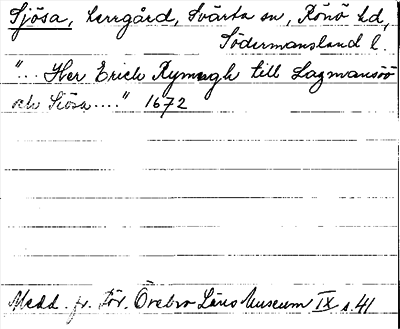 Sjösa, herrgård, Svärta sn, Rönö hd,
Södermanland l.
"... Her Erich Rynningh till Lagmansöö
och Siösa...." 1672
Medd. fr. För. Örebro Läns Museum IX s. 41